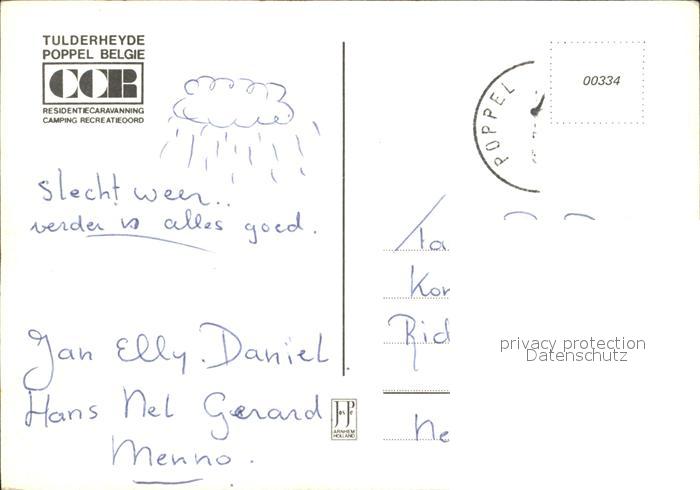 TULDERHEYDE
POPPEL BELGIE
CCR
RESIDENTIECARAVANNING
CAMPING RECREATIEOORD
slecht weer..
verder is alles goed.
Jan Elly. Daniel
Hans Nel Gerard
Menno.
ARNHEM
HOLLAND
POPPEL
00334
Kor
Rid
Ne
privacy protection
Datenschutz